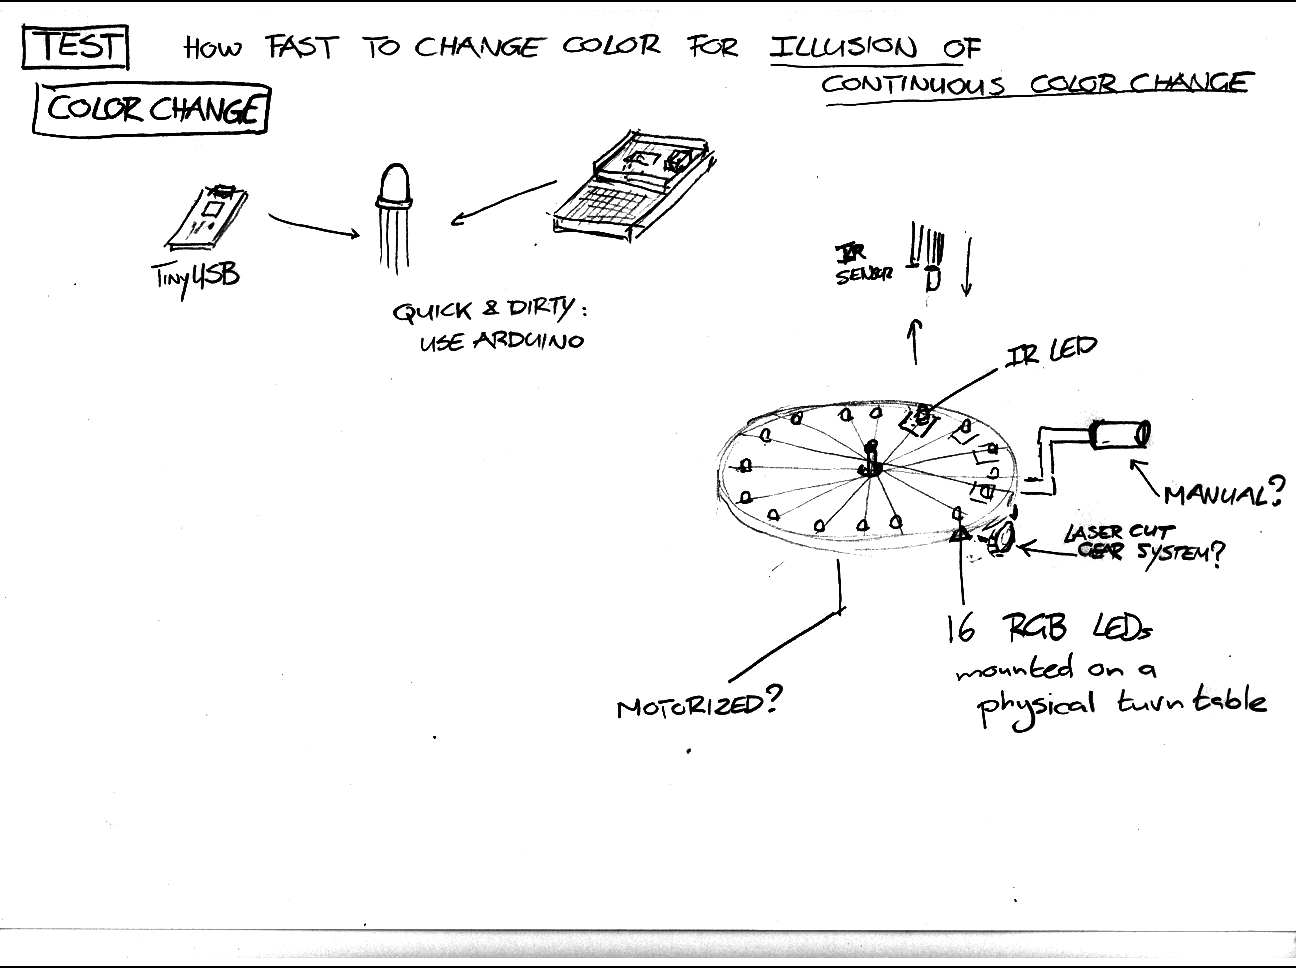 TEST HOW FAST TO CHANGE COLOR FOR ILLUSION OF
CONTINUOUS COLOR CHANGE
COLOR CHANGE
TINYUSB
QUICK & DIRTY:
USE ARDUINO
IR
SENSOR
IR LED
MANUAL?
LASER CUT
GEAR SYSTEM?
16 RGB LEDs
mounted on a
physical turntable
MOTORIZED?